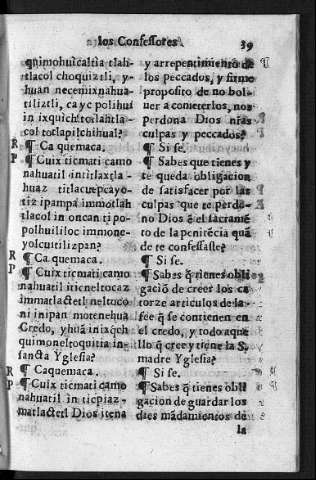 los Confessores.
39
quimohuicaltia tlah-
tlacol choquiztli, y-
huan necemixnahua-
tiliztli, ca yc polihui
in ixquich totlahtla-
col totlapilchihual?
R ¶ Ca quemaca.
P ¶ Cuix ticmati camo
nahuatil intitlaxtla-
huaz titlacuepcayo-
tiz ipampa immotlah
tlacol in oncan tipo-
polhuililoc immone-
yolcuitilizpan?
R ¶ Ca quemaca.
P ¶ Cuix ticmati camo
nahuatil iticneltocaz
immatlactetl neltoco
ni inipan motenehua
Credo, yhuã in ixq̃ch
quimoneltoquitia in-
sancta Yglesia?
R ¶ Caquemaca.
P ¶ Cuix ticmati camo
nahuatil in ticpiaz-
matlactetl Dios itena
y arrepentimiento de
los peccados, y firme
proposito de no bol-
uer a cometerlos, nos
perdona Dios nr̃as
culpas y peccados?
¶ Si se.
¶ Sabes que tienes y
te queda obligacion
de satisfacer por las
culpas que te perdo-
no Dios ẽ el sacramẽ
to de la penitẽcia quã
do te confessaste?
¶ Si se.
¶ Sabes q̃ tienes obli
gaciõ de creer los ca
torze articulos de la-
fee q̃ se contienen en
el credo, y todo aque
llo q̃ cree y tiene la S.
madre Yglesia?
¶ Si se.
¶ Sabes q̃ tienes obli
gacion de guardar los
diez mãdamientos de
la